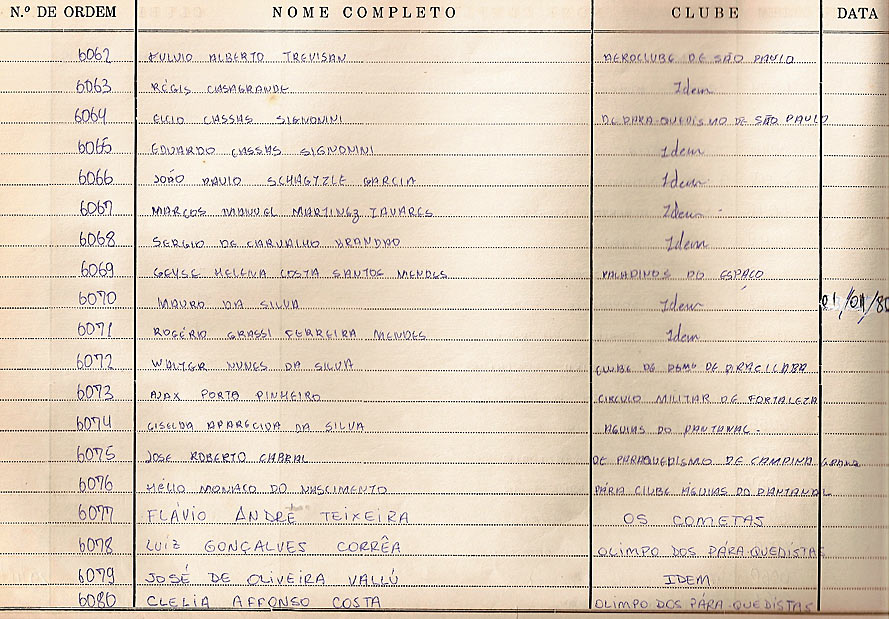 N.º DE ORDEM NOME COMPLETO CLUBE DATA
6062 FULVIO ALBERTO TREVISAN AEROCLUBE DE SÃO PAULO
6063 RÉGIS CASAGRANDE Idem
6064 CICIO CASSAS SIGNORINI DE PARA-QUEDISMO DE SÃO PAULO
6065 EDUARDO CASSAS SIGNORINI Idem
6066 JOÃO PAULO GARCIA Idem
6067 MARCOS MANUEL MARTINEZ TAVARES Idem
6068 SERGIO DE CARVALHO BRANDÃO Idem
6069 GEYSE HELENA COSTA SANTOS MENDES PALADINOS DO ESPAÇO
6070 MAURO DA SILVA Idem 01/01/80
6071 ROGÉRIO GRASSI FERREIRA MENDES Idem
6072 WALTER NUNES DA SILVA CLUBE DE PSMO DE PIRACICABA
6073 AJAX PORTO PINHEIRO CIRCULO MILITAR DE FORTALEZA
6074 GISELDA APARECIDA DA SILVA AGUIAS DO PANTANAL -
6075 JOSE ROBERTO CABRAL DE PARAQUEDISMO DE CAMPINA GRANDE
6076 HÉLIO MONIACO DO NASCIMENTO PÁRA CLUBE ÁGUIAS DO PANTANAL
6077 FLÁVIO ANDRÉ TEIXEIRA OS COMETAS
6078 LUIZ GONÇALVES CORRÊA OLIMPO DOS PÁRA-QUEDISTAS
6079 JOSÉ DE OLIVEIRA VALLÚ IDEM
6080 CLELIA AFFONSO COSTA OLIMPO DOS PÁRA-QUEDISTAS